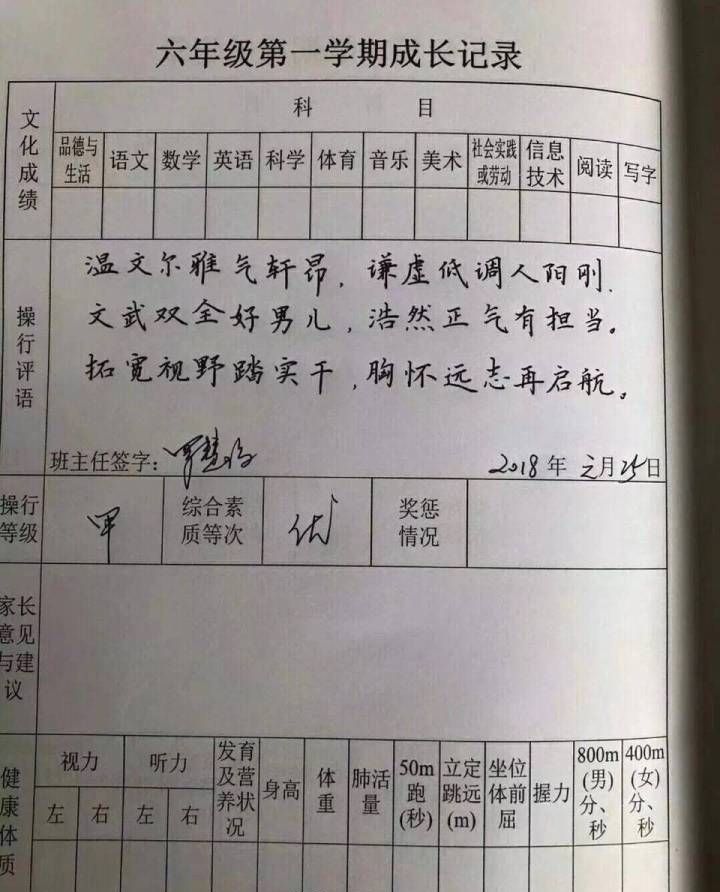 六年级第一学期成长记录
文化成绩
科 目
品德与生活 语文 数学 英语 科学 体育 音乐 美术 社会实践或劳动 信息技术 阅读 写字
操行评语
温文尔雅气轩昂，谦虚低调人阳刚.
文武双全好男儿，浩然正气有担当。
拓宽视野踏实干，胸怀远志再启航。
班主任签字： 2018年元月25日
操行等级 甲 综合素质等次 优 奖惩情况
家长意见与建议
健康体质
视力 听力 发育及营养状况 身高 体重 肺活量 50m跑(秒) 立定跳远(m) 坐位体前屈 握力 800m(男)分、秒 400m(女)分、秒
左 右 左 右